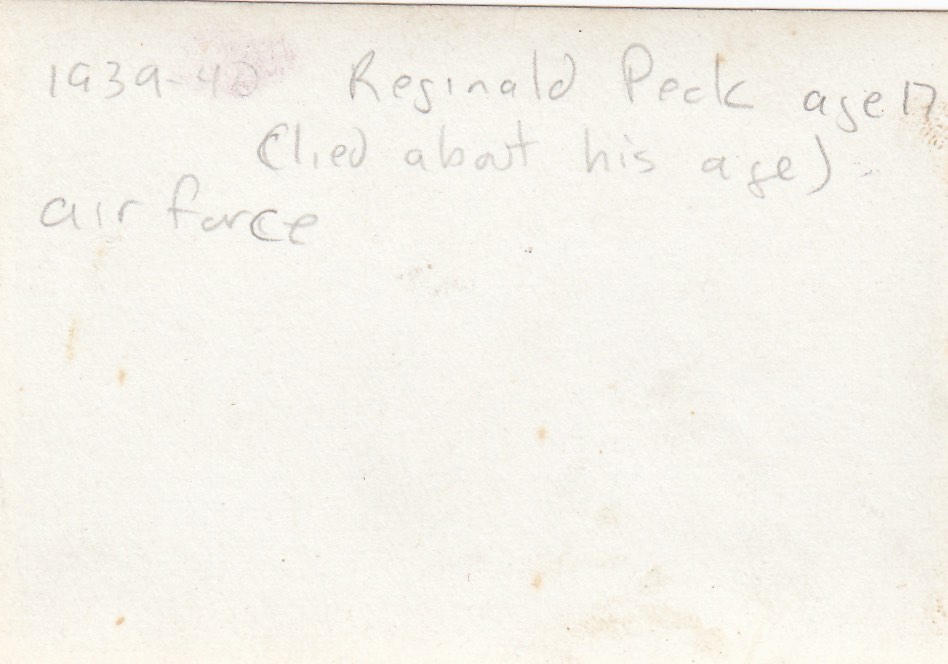 1939-40 Reginald Peck age 17
(lied about his age).
air force